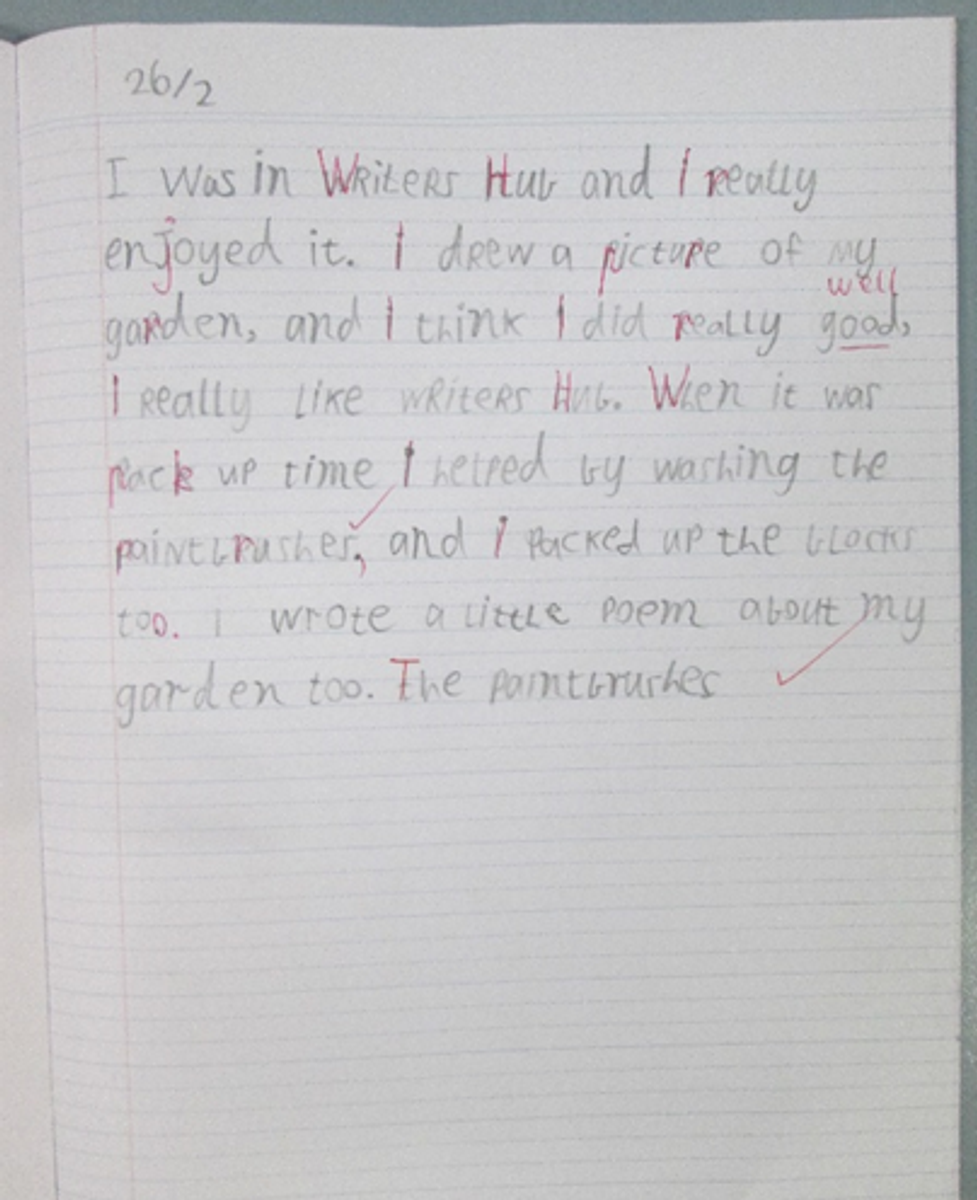 26/2
I was in Writers Hub and I really
enjoyed it. I drew a picture of my
well
garden, and I think I did really good,
I really like writers Hub. When it was
pack up time I helped by washing the
paintbrushes, and I packed up the blocks
too. I wrote a little poem about my
garden too. The paintbrushes